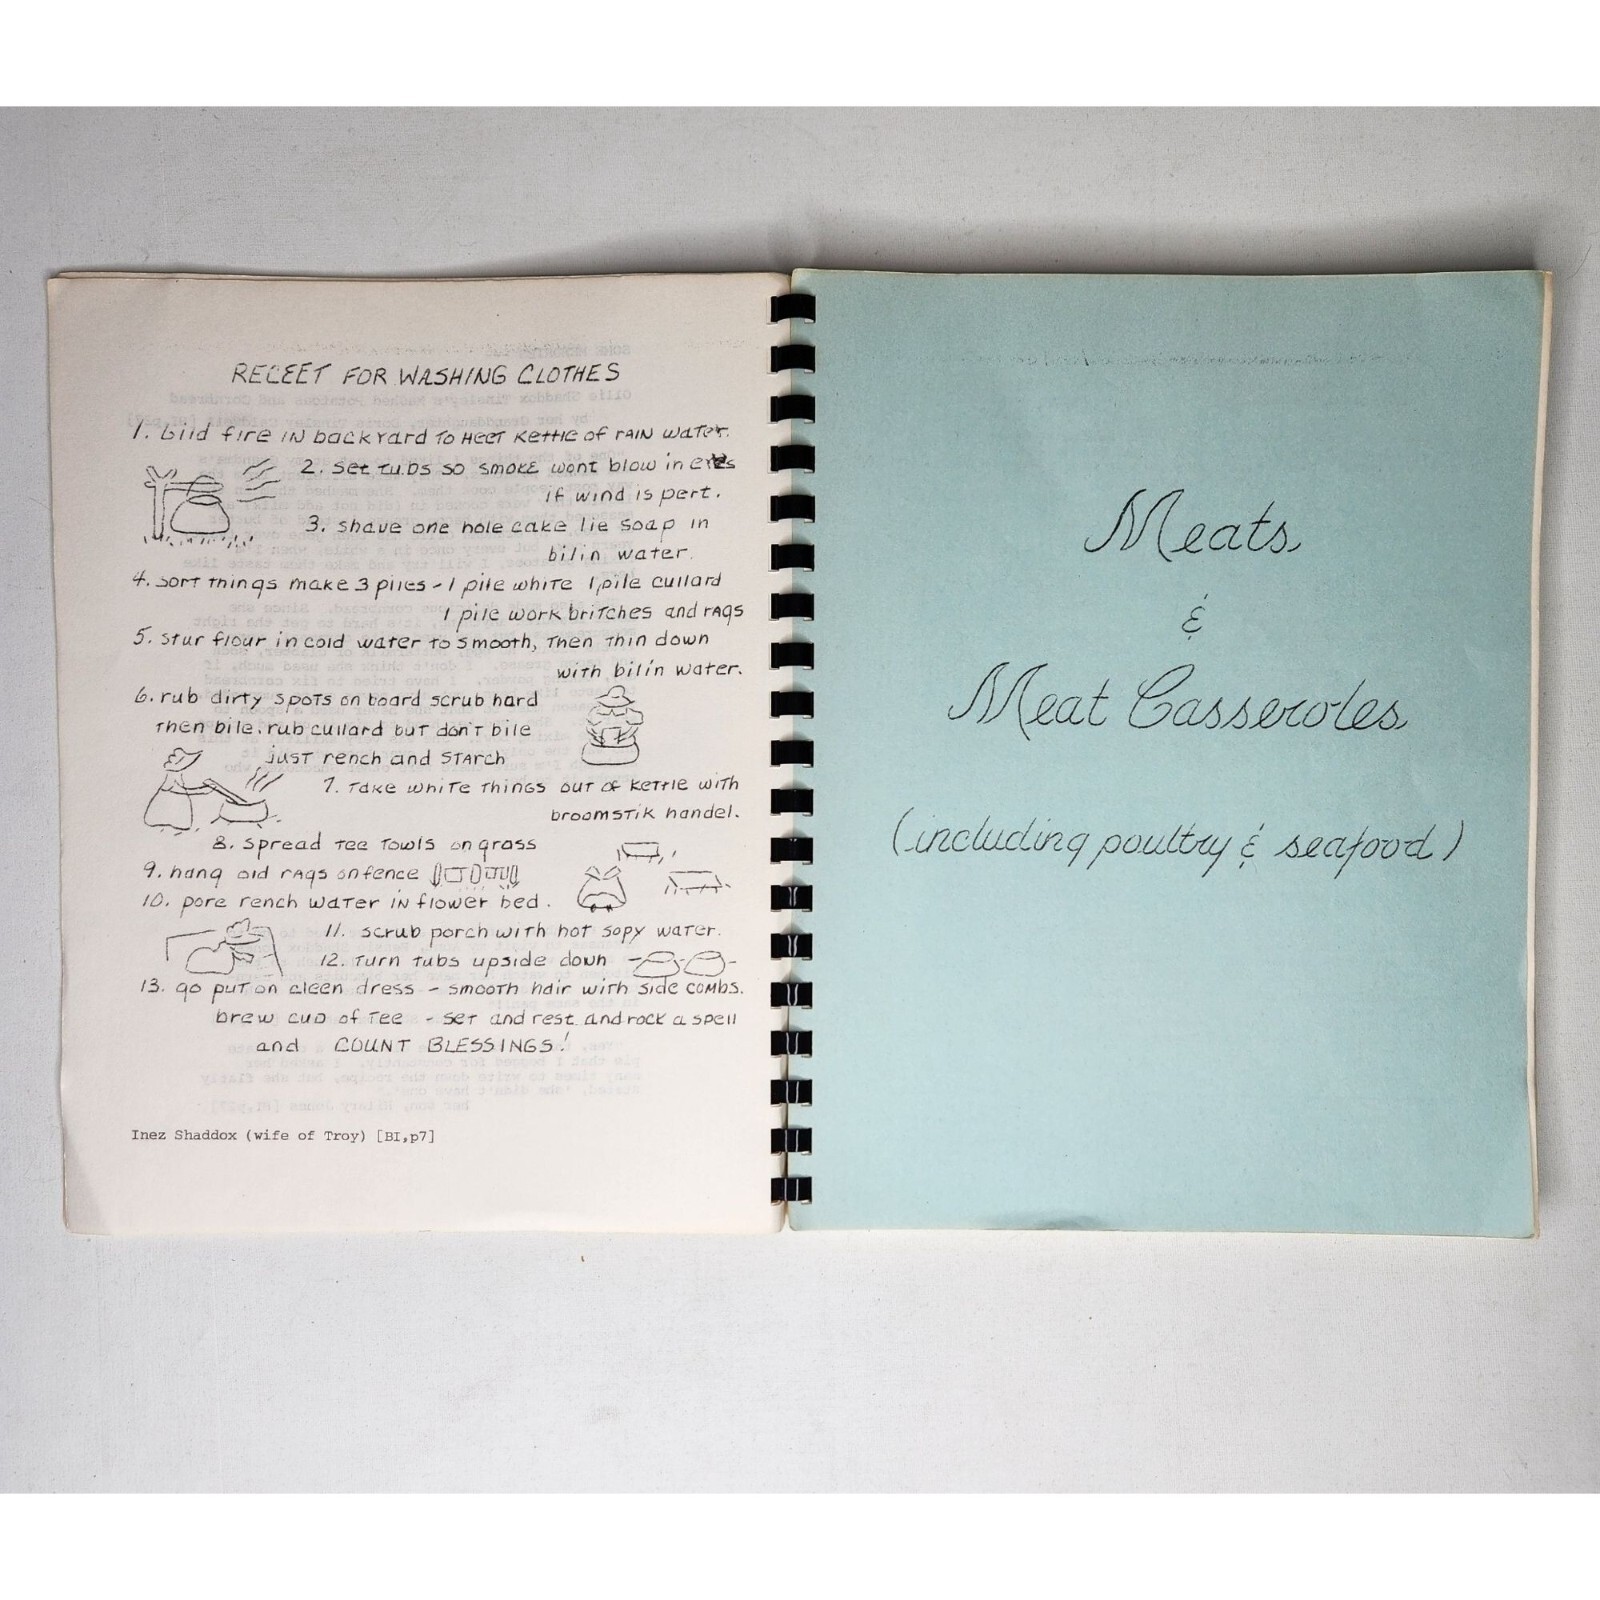 RECEET FOR WASHING CLOTHES
1. bild fire IN backyard TO HEET Kettle of RAIN WATER.
2. set tubs so smoke wont blow in eyes
if wind is pert.
3. shave one hole cake lie soap in
bilin water.
4. sort things make 3 piles - 1 pile white 1 pile cullard
1 pile work britches and rags
5. stur flour in cold water to smooth, then thin down
with bilin water.
6. rub dirty spots on board scrub hard
then bile. rub cullard but don't bile
just rench and starch
7. take white things out of kettle with
broomstik handel.
8. spread tee towls on grass
9. hang old rags on fence
10. pore rench water in flower bed.
11. scrub porch with hot sopy water.
12. turn tubs upside down
13. go put on cleen dress - smooth hair with side combs.
brew cup of tee - set and rest and rock a spell
and COUNT BLESSINGS!
Inez Shaddox (wife of Troy) [BI,p7]
Meats
&
Meat Casseroles
(including poultry & seafood)